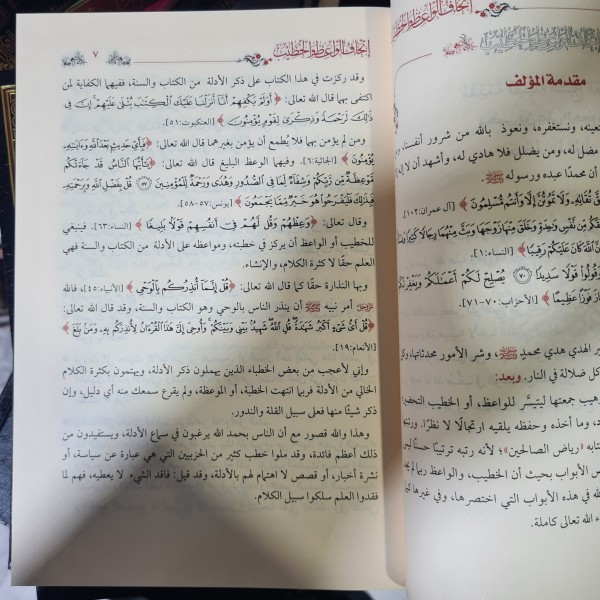 إتحاف الواعظ والخطيب
مقدمة المؤلف
ونستعينه، ونستغفره، ونعوذ بالله من شرور أنفسنا،
مضل له، ومن يضلل فلا هادي له، وأشهد أن لا
أن محمدًا عبده ورسوله ﷺ
تُقَاتِهِ وَلَا تَمُوتُنَّ إِلَّا وَأَنتُم مُّسْلِمُونَ ﴾ [آل عمران:١٠٢]
مِّن نَّفْسٍ وَٰحِدَةٍ وَخَلَقَ مِنْهَا زَوْجَهَا وَبَثَّ مِنْهُمَا رِجَالًا كَثِيرًا
ٱللَّهَ كَانَ عَلَيْكُمْ رَقِيبًا ﴾ [النساء:١]
وَقُولُوا۟ قَوْلًا سَدِيدًا ٧٠ يُصْلِحْ لَكُمْ أَعْمَٰلَكُمْ وَيَغْفِرْ لَكُمْ
فَازَ فَوْزًا عَظِيمًا ﴾ [الأحزاب:٧٠-٧١]
الهدي هدي محمدٍ ﷺ، وشر الأمور محدثاتها،
كل ضلالة في النار. وبعد:
جمعتها ليتيسَّر للواعظ، أو الخطيب
وما أخذه وحفظه يلقيه ارتجالًا لا نظرًا.
«رياض الصالحين»؛ لأنه رتبه ترتيبًا حسنًا
الأبواب بحيث أن الخطيب، والواعظ ربما
في هذه الأبواب التي اختصرها، وفي غيرها
الله تعالى كاملة.
إتحاف الواعظ والخطيب ٧
وقد ركزت في هذا الكتاب على ذكر الأدلة من الكتاب والسنة، ففيهما الكفاية لمن
اكتفى بهما قال الله تعالى: ﴿ أَوَلَمْ يَكْفِهِمْ أَنَّا أَنزَلْنَا عَلَيْكَ ٱلْكِتَٰبَ يُتْلَىٰ عَلَيْهِمْ إِنَّ فِى
ذَٰلِكَ لَرَحْمَةً وَذِكْرَىٰ لِقَوْمٍ يُؤْمِنُونَ ﴾ [العنكبوت:٥١].
ومن لم يؤمن بهما فلا يُطمع أن يؤمن بغيرهما قال الله تعالى: ﴿ فَبِأَىِّ حَدِيثٍۭ بَعْدَ ٱللَّهِ وَءَايَٰتِهِۦ
يُؤْمِنُونَ ﴾ [الجاثية:٦]. وفيهما الوعظ البليغ قال الله تعالى: ﴿ يَٰٓأَيُّهَا ٱلنَّاسُ قَدْ جَآءَتْكُم
مَّوْعِظَةٌ مِّن رَّبِّكُمْ وَشِفَآءٌ لِّمَا فِى ٱلصُّدُورِ وَهُدًى وَرَحْمَةٌ لِّلْمُؤْمِنِينَ ٥٧ قُلْ بِفَضْلِ ٱللَّهِ وَبِرَحْمَتِهِۦ
فَبِذَٰلِكَ فَلْيَفْرَحُوا۟ هُوَ خَيْرٌ مِّمَّا يَجْمَعُونَ ﴾ [يونس:٥٧-٥٨].
وقال تعالى: ﴿ وَعِظْهُمْ وَقُل لَّهُمْ فِىٓ أَنفُسِهِمْ قَوْلًۢا بَلِيغًا ﴾ [النساء:٦٣]. فينبغي
للخطيب أو الواعظ أن يركز في خطبته، ومواعظه على الأدلة من الكتاب والسنة فهي
العلم حقًا لا كثرة الكلام، والإنشاء.
وبها النذارة حقًا كما قال الله تعالى: ﴿ قُلْ إِنَّمَآ أُنذِرُكُم بِٱلْوَحْىِ ﴾ [الأنبياء:٤٥]، فالله
عز وجل أمر نبيه ﷺ أن ينذر الناس بالوحي وهو الكتاب والسنة، وقد قال الله تعالى:
﴿ قُلْ أَىُّ شَىْءٍ أَكْبَرُ شَهَٰدَةً قُلِ ٱللَّهُ شَهِيدٌۢ بَيْنِى وَبَيْنَكُمْ وَأُوحِىَ إِلَىَّ هَٰذَا ٱلْقُرْءَانُ لِأُنذِرَكُم بِهِۦ وَمَنۢ بَلَغَ ﴾
[الأنعام:١٩].
وإني لأعجب من بعض الخطباء الذين يهملون ذكر الأدلة، ويهتمون بكثرة الكلام
الخالي من الأدلة فربما انتهت الخطبة، أو الموعظة، ولم يقرع سمعك منه أي دليل، وإن
ذكر شيئًا منها فعلى سبيل القلة والندور.
وهذا والله قصور مع أن الناس بحمد الله يرغبون في سماع الأدلة، ويستفيدون من
ذلك أعظم فائدة، وقد ملوا خطب كثير من الحزبيين التي هي عبارة عن سياسة، أو
نشرة أخبار، أو قصص لا اهتمام لهم بالأدلة، وقد قيل: فاقد الشيء لا يعطيه، فهم لما
فقدوا العلم سلكوا سبيل الكلام.